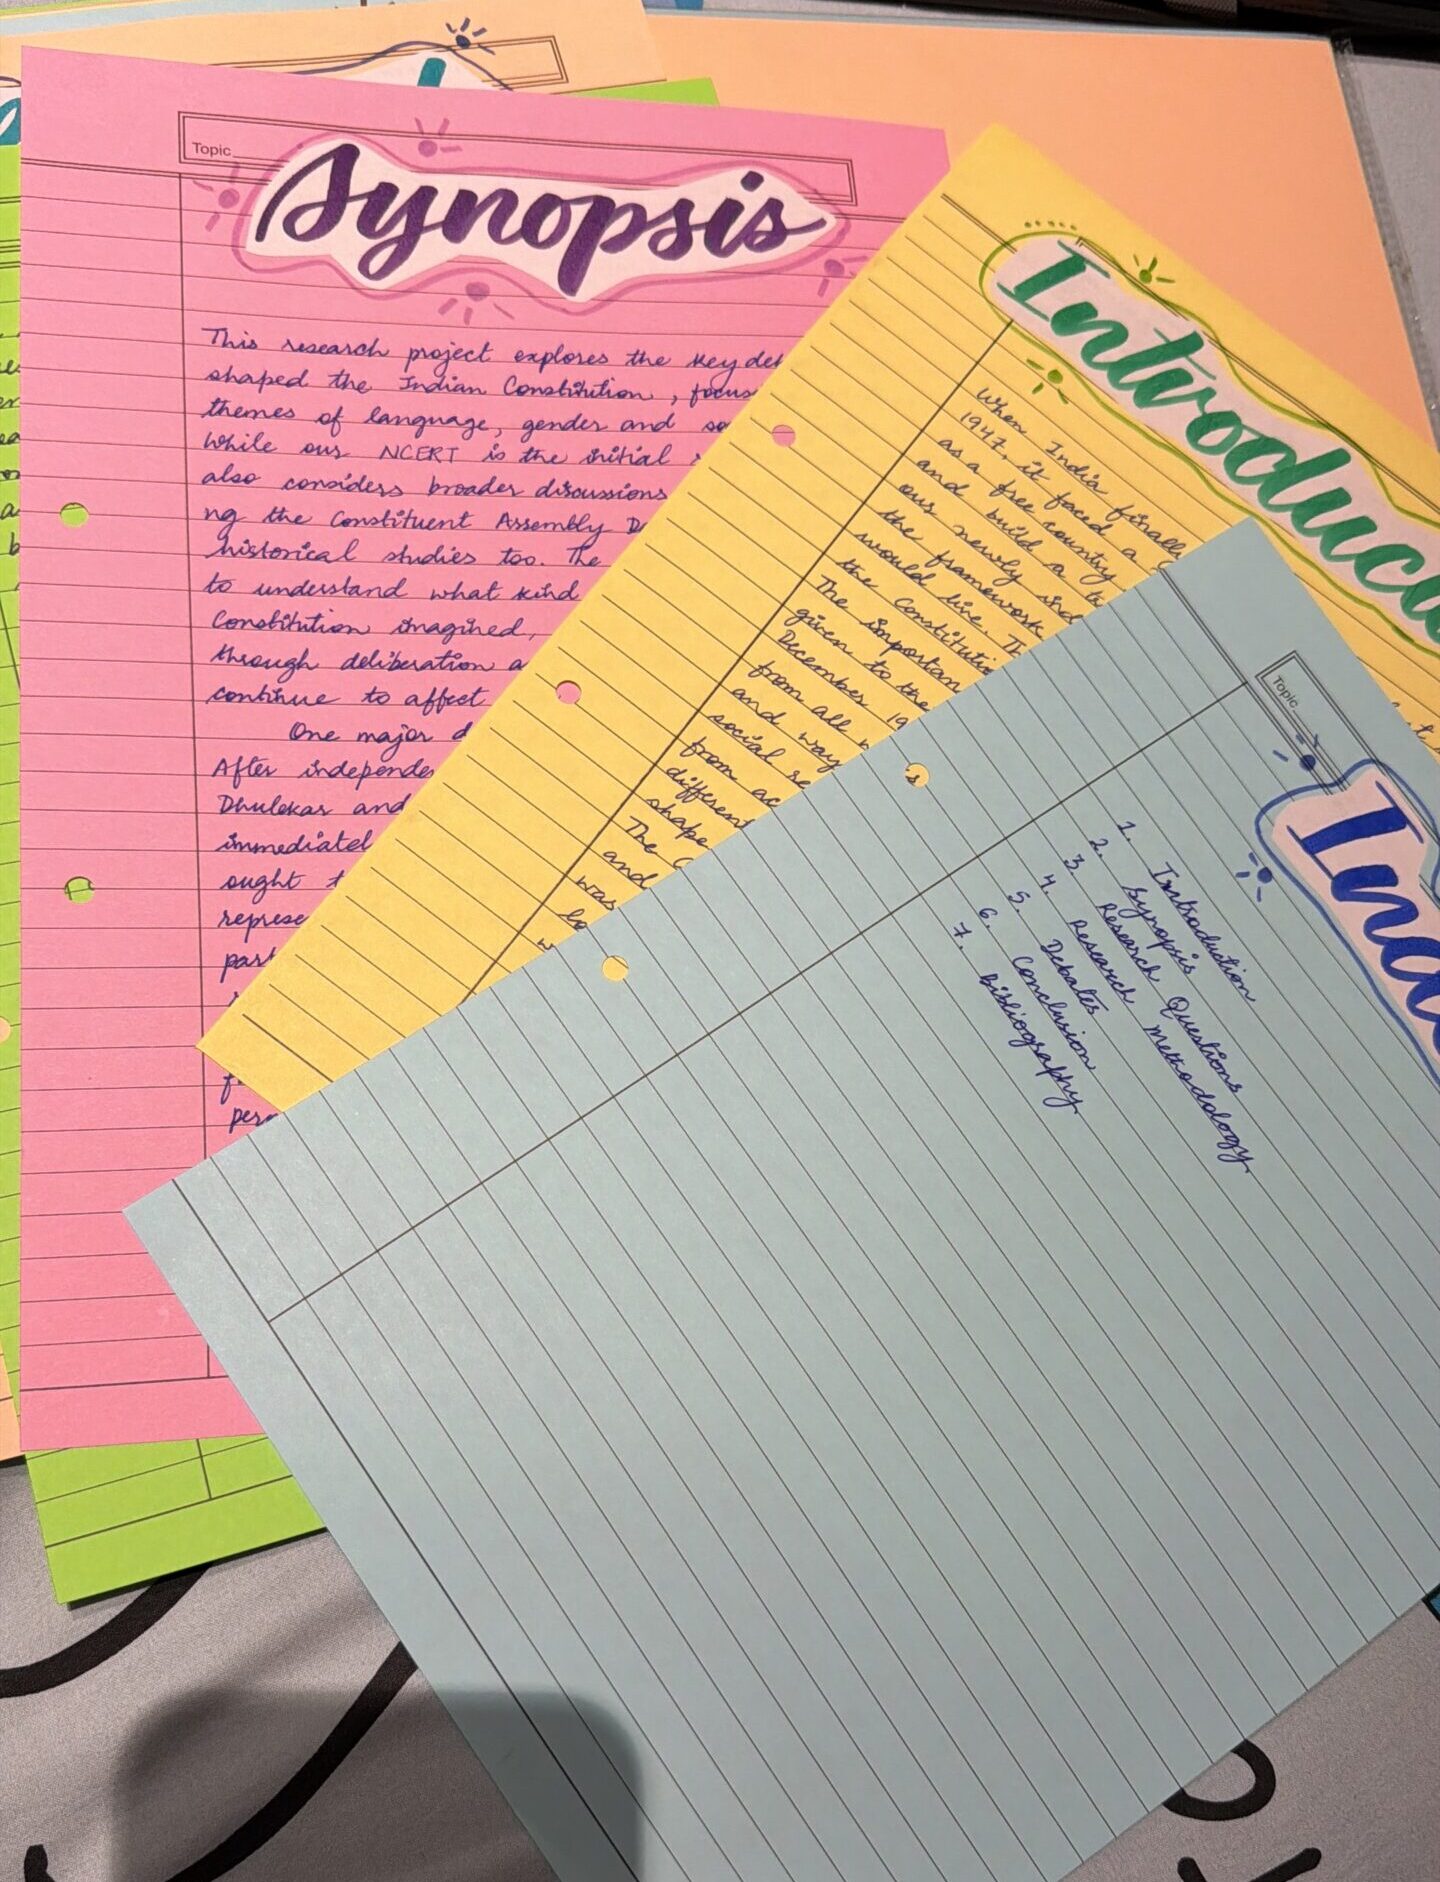 Topic
Synopsis
This research project explores the key
shaped the Indian Constitution, focus
themes of language, gender and
While our NCERT is the initial
also considers broader discussions
ng the Constituent Assembly
historical studies too. The
to understand what kind
Constitution imagined,
through deliberation a
continue to affect
One major d
After independe
Dhulekar and
immediatel
ought t
represe
part
f
pers
Introduc
When India finally
1947, it faced a
as a free country
and build a
our newly ind
the framework
would live. Th
the Constitution
The importan
given to the
December 19
from all
and way
social se
from ac
different
shape
The C
and
was
Topic
Ind
1. Introduction
2. Synopsis
3 Research Questions
4. Research Methodology
5. Debates
6. Conclusion
7. Bibliography